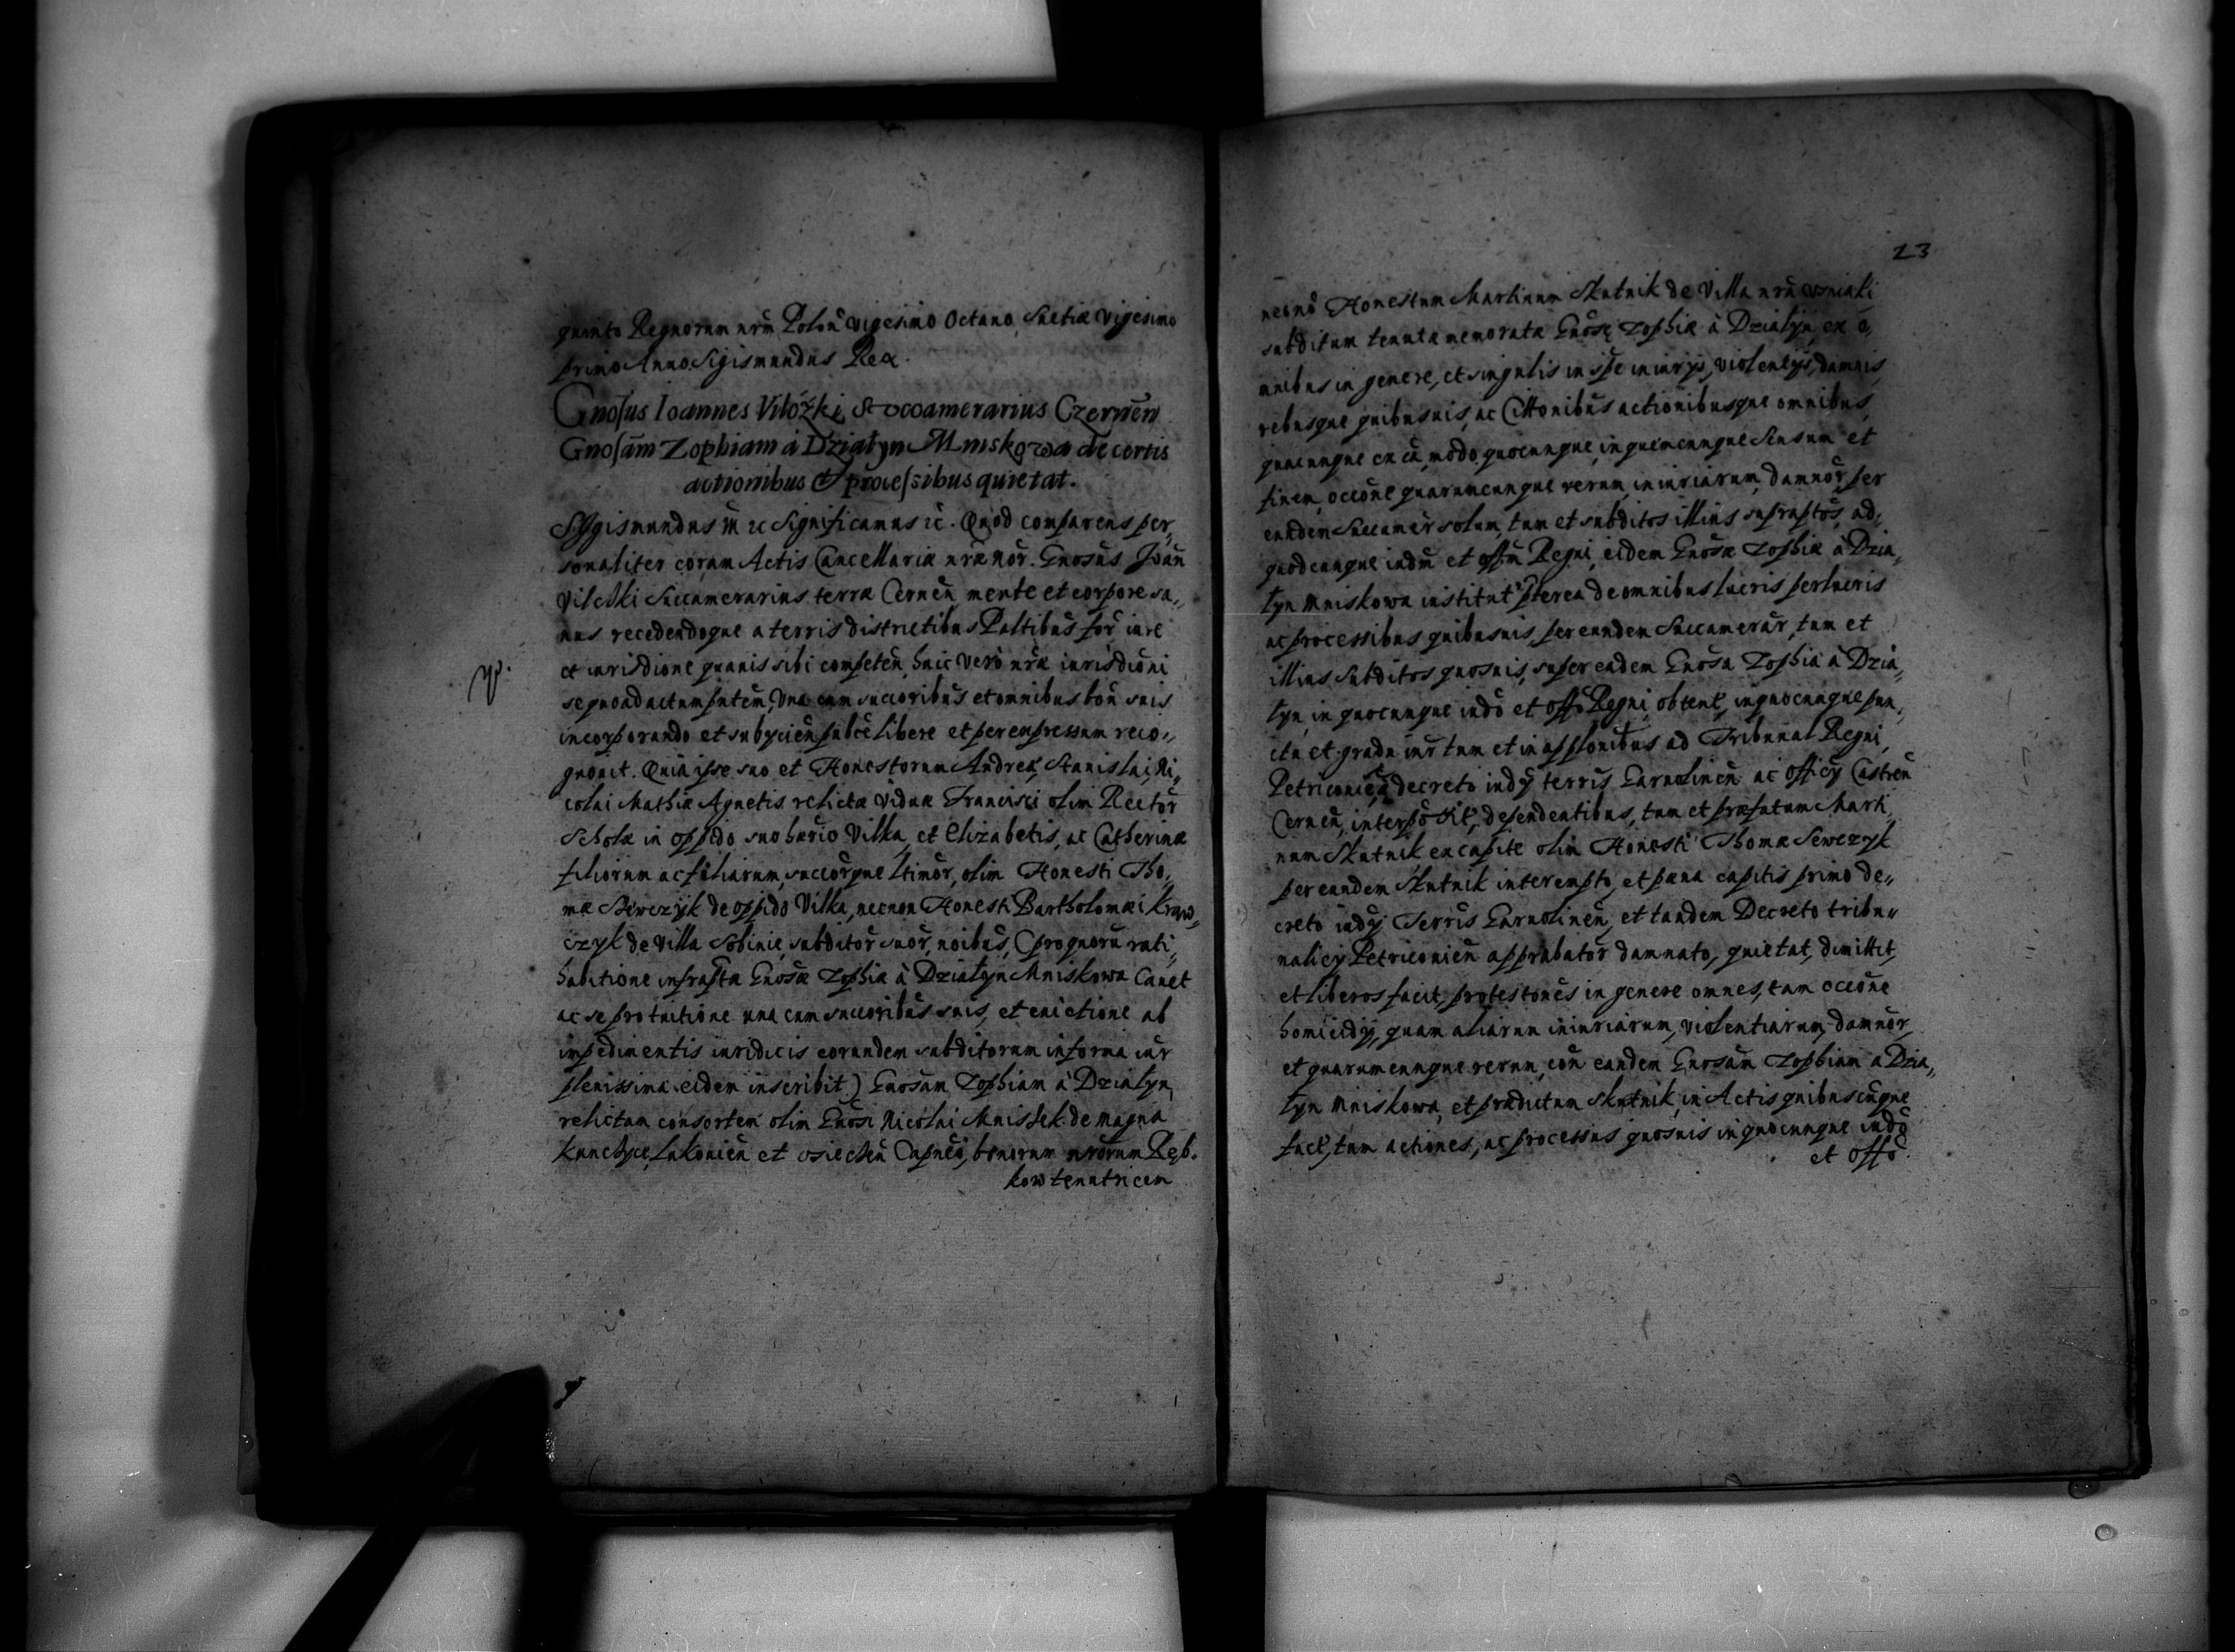 quinto Regnorum nrm̄ Polon̄ vigesimo Octauo, Suetiæ Vigesimo
primo Anno Sigismundus Rex.
Gnosus Ioannes Vilczki Succamerarius Czernen̄
Gnosām Zophiam à Działyn Mniskowa de certis
actionibus et processibus quietat.
Sygismundus m̄ zc Significamus zc. Quod comparens per,,
sonaliter coram Actis Cancellariæ nræ nōr. Gnosus Joān
Vilchki Succamerarius terræ Cernen̄, mente et corpore sa,,
nus recedendoque a terris districtibus Paltibūs for iure
et iurisdione quauis sibi competen̄, huic vero nræ iurisdioni
se quoad actum pn̄tem, vna cum succoribūs et omnibus bon̄ suis
incorporando et subycien̄ publce libere et per expressum reco,,
gnouit. Quia ipse suo et Honestorum Andreæ, Stanislai, Ni,,
colai Mathiæ Agnetis relictæ viduæ Francisci olim Rectōr
Scholæ in oppido suo hærio Vilka, et Elizabetis, ac Catherinæ
filiorum ac filiarum, succorque ltimōr, olim Honesti Tho,,
mæ Sewczyk de oppido Vilka, necnon Honesti Bartholomæi Kraw,,
czyk de Villa Sobinie, subditōr suōr, noibūs, (pro quorū rati,,
habitione infrapta Gnosæ Zophiæ à Działyn Mniskowa Cauet
ac se pro tuitione una cum succoribūs suis, et euictione ab
impedimentis iuridicis eorundem subditorum in forma iur
plenissima eidem inscribit) Gnosam Zophiam à Działyn
relictam consortem olim Gnosi Nicolai Mnissek de magna
Kunczyce, Lukouien̄ et Osiechen̄ Capnei, bonorum nrorum Ręb.
kow tenutricem
23
necnō Honestum Martinum Skutnik de Villa nrā Vsniaki
subditum tenutæ memoratæ Gnosę Zophiæ à Działyn, ex o,,
mnibus in genere, et singulis in spe iniurys, violentys, damnis,
rebusque quibusuis, ac Cittonibūs actionibusque omnibus,
quacunque ex cā, modo quocunque, in quemcunque sensum et
finem, occone quarumcunque rerum, iniuriarum, damnōr, per
eundem Succamer solum, tum et subditos illius supraptos, ad,,
quodcunque indm et offm Regni, eidem Gnosæ Zophiæ à Dzia,,
łyn Mniskowa institut, pterea de omnibus lucris perlucris
ac processibus quibusuis, per eundem Succamerār, tum et
illius subditos quosuis, super eadem Gnosa Zophia à Dzia,,
łyn, in quocunque indō et offō Regni, obtent, in quocunque pun,,
cto et gradu iur tum et in applonibus ad Tribunal Regni,
Petricouien̄, decreto indy terris Garuolinen̄ ac officy Castren̄
Cernen̄, interposit, dependentibus, tum et præfatum Marti,,
num Skutnik ex capite olim Honesti Thomæ Sewczyk
per eundem Skutnik interempto, et pæna capitis primo de,,
creto indy Terris Garuolinen̄, et tandem Decreto tribu,,
nalicy Petricouien̄ approbatōr damnato, quietat, dimittit,
et liberos facit, protestones in genere omnes, tam occone
homicidy, quam aliarum iniuriarum, violentiarum, damnōr,
et quarumcunque rerum, con eandem Gnosam Zophiam a Dzia,,
łyn Mniskowa, et prædictum Skutnik, in Actis quibuscūque
fact, tum actiones, ac processus quosuis in quocunque indō
et offō